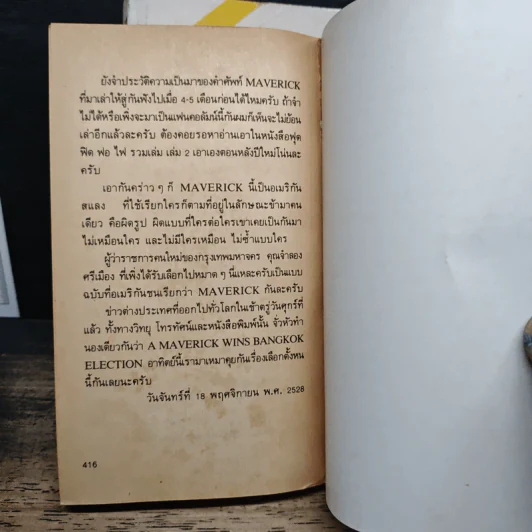 ยังจำประวัติความเป็นมาของคำศัพท์ MAVERICK
ที่มาเล่าให้สู่กันฟังไปเมื่อ 4-5 เดือนก่อนได้ไหมครับ ถ้าจำ
ไม่ได้หรือเพิ่งจะมาเป็นแฟนคอลัมน์นี้กันผมก็เห็นจะไม่ย้อน
เล่าอีกแล้วละครับ ต้องคอยรอหาอ่านเอาในหนังสือฟุด
ฟิด ฟอ ไฟ รวมเล่ม เล่ม 2 เอาเองตอนหลังปีใหม่โน่นละ
ครับ
เอากันคร่าว ๆ ก็ MAVERICK นี้เป็นอเมริกัน
สแลง ที่ใช้เรียกใครก็ตามที่อยู่ในลักษณะข้ามาคน
เดียว คือผิดรูป ผิดแบบที่ใครต่อใครเขาเคยเป็นกันมา
ไม่เหมือนใคร และไม่มีใครเหมือน ไม่ซ้ำแบบใคร
ผู้ว่าราชการคนใหม่ของกรุงเทพมหาจคร คุณจำลอง
ศรีเมือง ที่เพิ่งได้รับเลือกไปหมาด ๆ นี่แหละครับเป็นแบบ
ฉบับที่อเมริกันชนเรียกว่า MAVERICK กันละครับ
ข่าวต่างประเทศที่ออกไปทั่วโลกในเช้าตรู่วันศุกร์ที่
แล้ว ทั้งทางวิทยุ โทรทัศน์และหนังสือพิมพ์นั้น จั่วหัวทำ
นองเดียวกันว่า A MAVERICK WINS BANGKOK
ELECTION อาทิตย์นี้เรามาเหมาคุยกันเรื่องเลือกตั้งหน
นี้กันเลยนะครับ
วันจันทร์ที่ 18 พฤศจิกายน พ.ศ. 2528
416